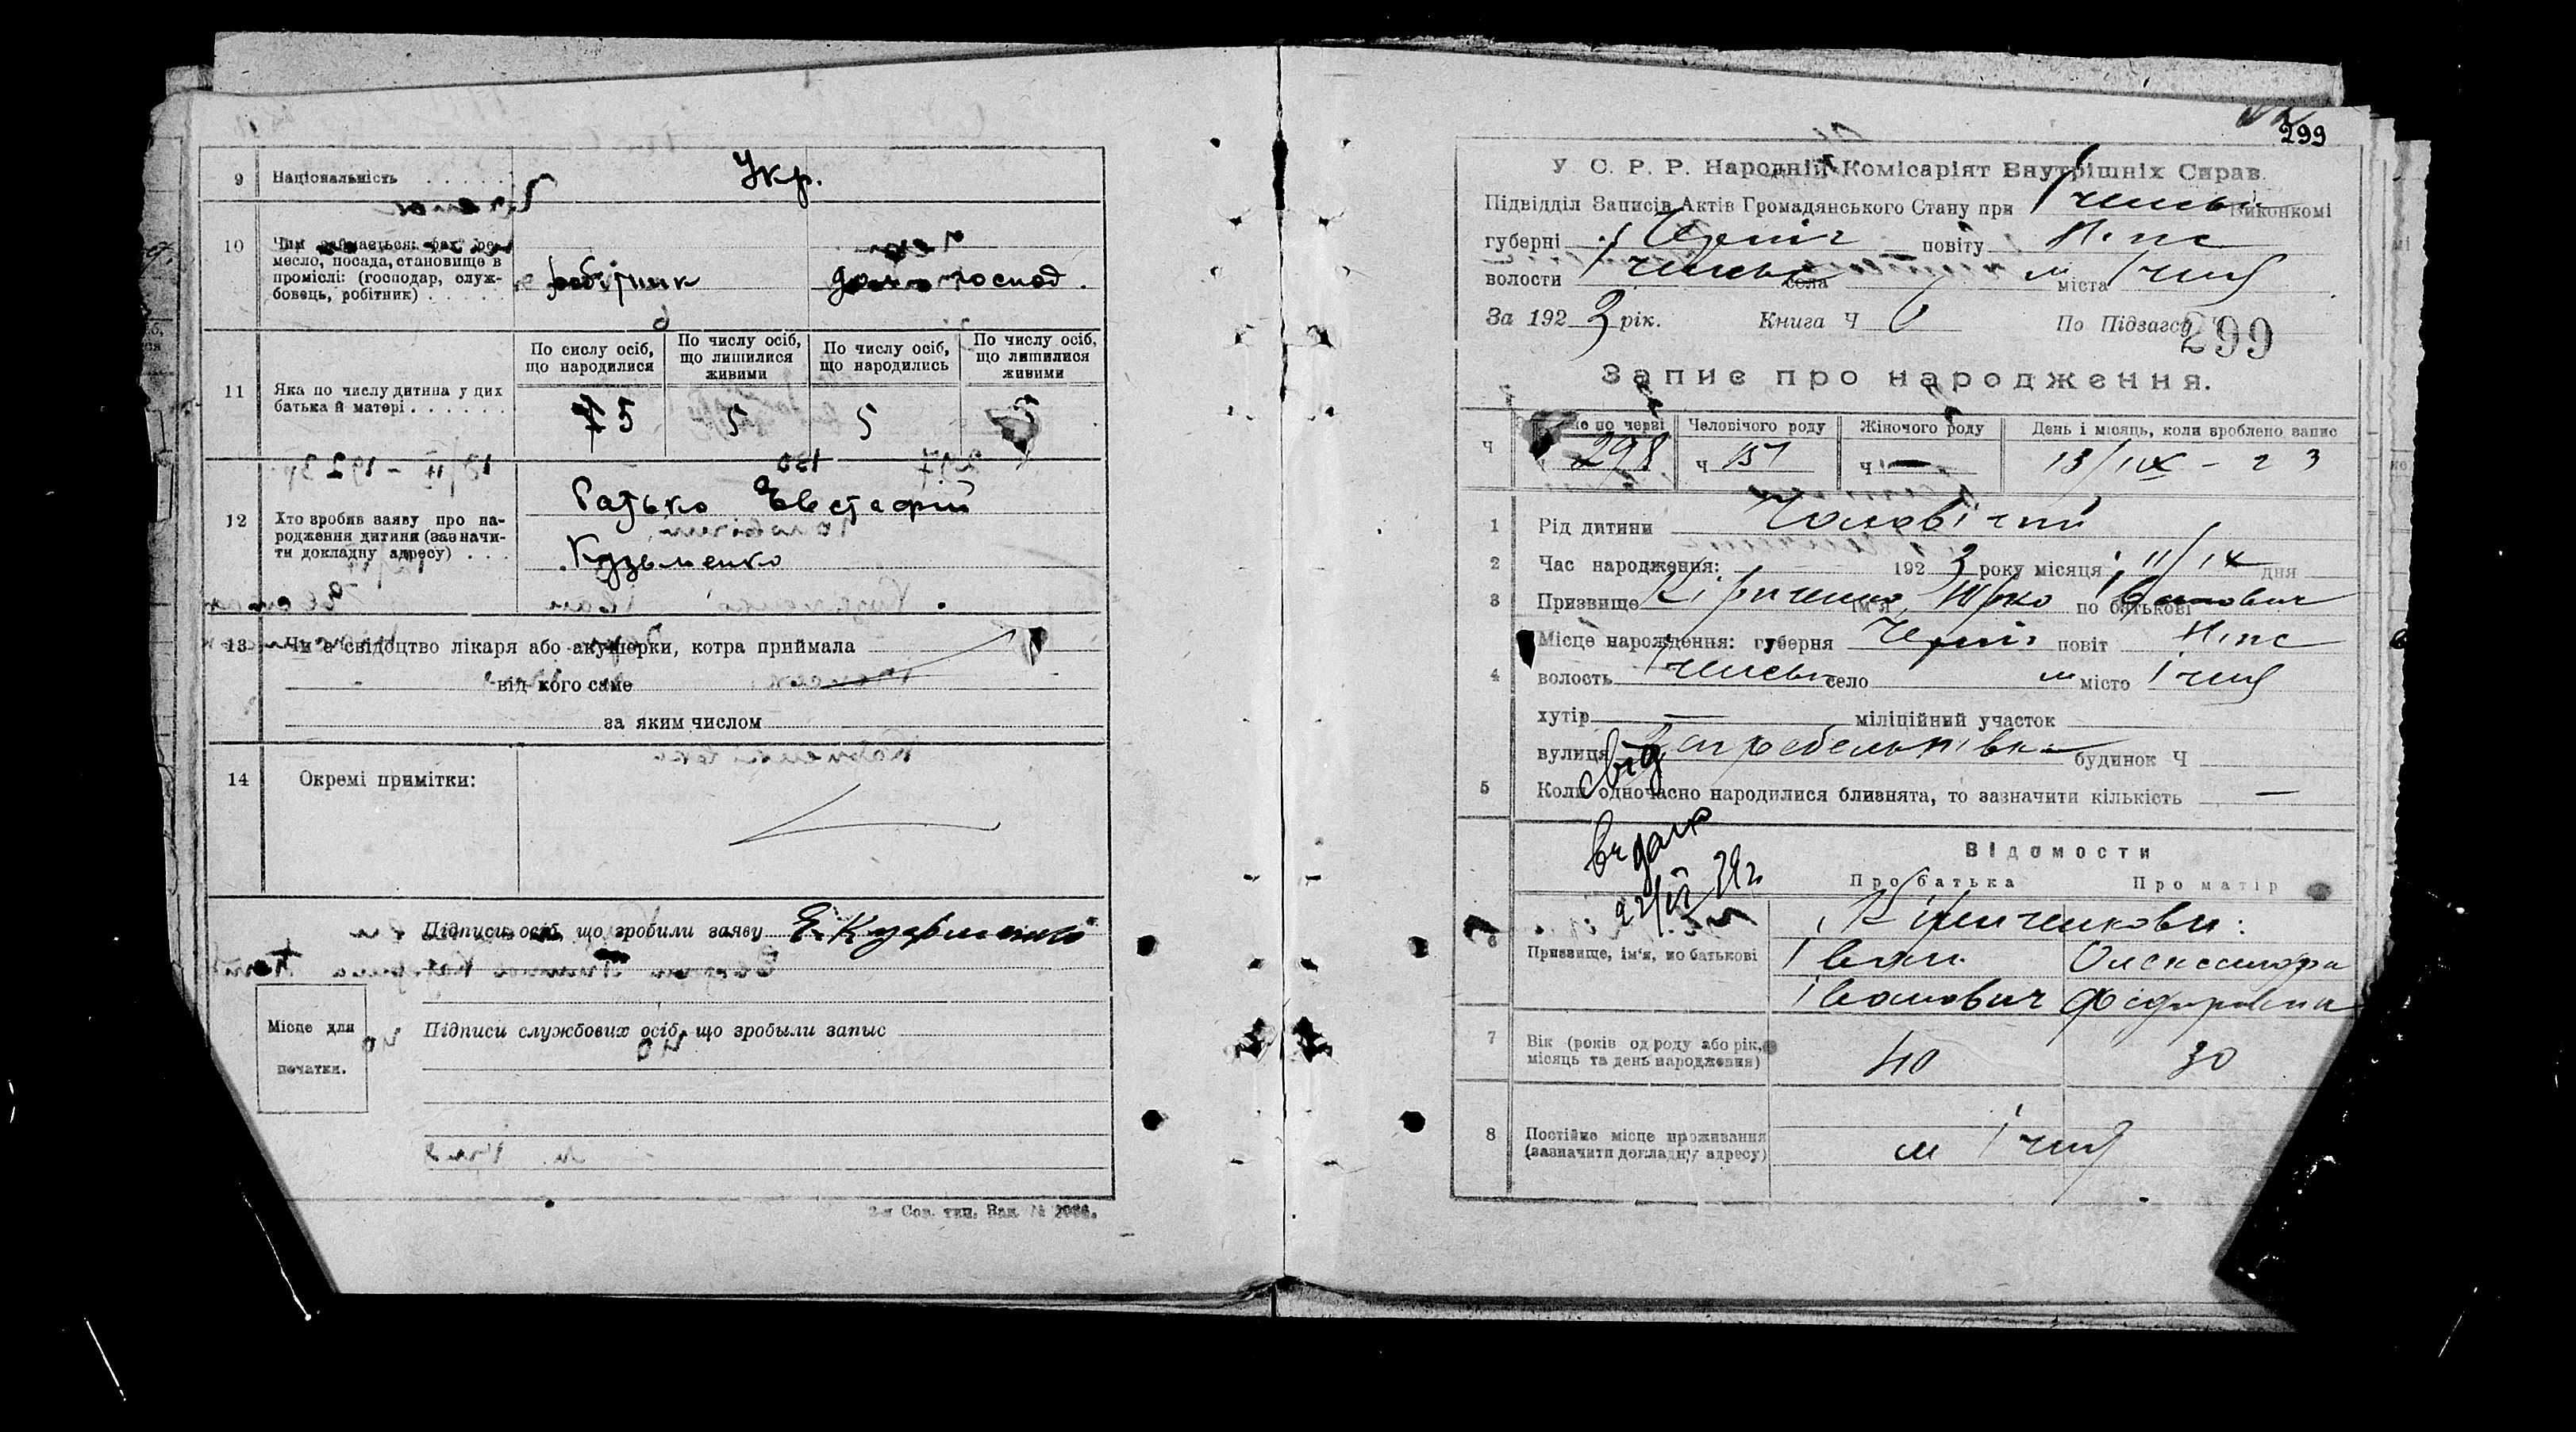 9 Національність Укр.
10 Чим займається: фах, ре-
месло, посада, становище в
промислі: (господар, служ-
бовець, робітник)
робітник
господ.
11 Яка по числу дитина у цих
батька й матері
По сислу осіб,
що народилися
По числу осіб,
що лишилися
живими
По числу осіб,
що народились
По числу осіб,
що лишилися
живими
5 5 5 5
12 Хто зробив заяву про на-
родження дитини (зазначи-
ти докладну адресу)
Батько Евстафій
Кузьменко
13 Чи є свідоцтво лікаря або акушорки, котра приймала
від кого саме
за яким числом
14 Окремі примітки:
Підписи осіб, що зробили заяву Е. Кузьменко
Місце для
печатки.
Підписи службових осіб, що зробыли запыс
2-я Сов. тип. Зак. №
299
У. С. Р. Р. Народній Комісаріят Внутрішніх Справ.
Підвідділ Записів Актів Громадянського Стану при Ічнськ Виконкомі
губерні Черніг повіту Ніж
волости Ічнськ села м міста Ічня
За 1923 рік. Книга Ч По Підзагсу
299
Запис про народження.
Ч
по черзі
Человічого роду
Жіночого роду
День і місяць, коли зроблено запис
298 ч 151 ч — 13/IX - 23
1 Рід дитини Чоловічий
2 Час народження: 1923 року місяця 11/IX дня
3 Призвище Кіриченко ім'я Юрко по батькові Іванович
4 Місце народження: губерня Черніг повіт Ніж
волость Ічнськ село м місто Ічня
хутір — міліційний участок
вулиця Загребельнівка будинок Ч
5 Коли одночасно народилися близнята, то зазначити кількість —
свід
видано
39г.
Відомости
Про батька Про матір
6 Призвище, ім'я, по батькові
Кіриченкови:
Іван Олександра
Іванович Федоровна
7 Вік (років од роду або рік,
місяць та день народження)
40 30
8 Постійне місце проживання
(зазначити докладну адресу)
м Ічня